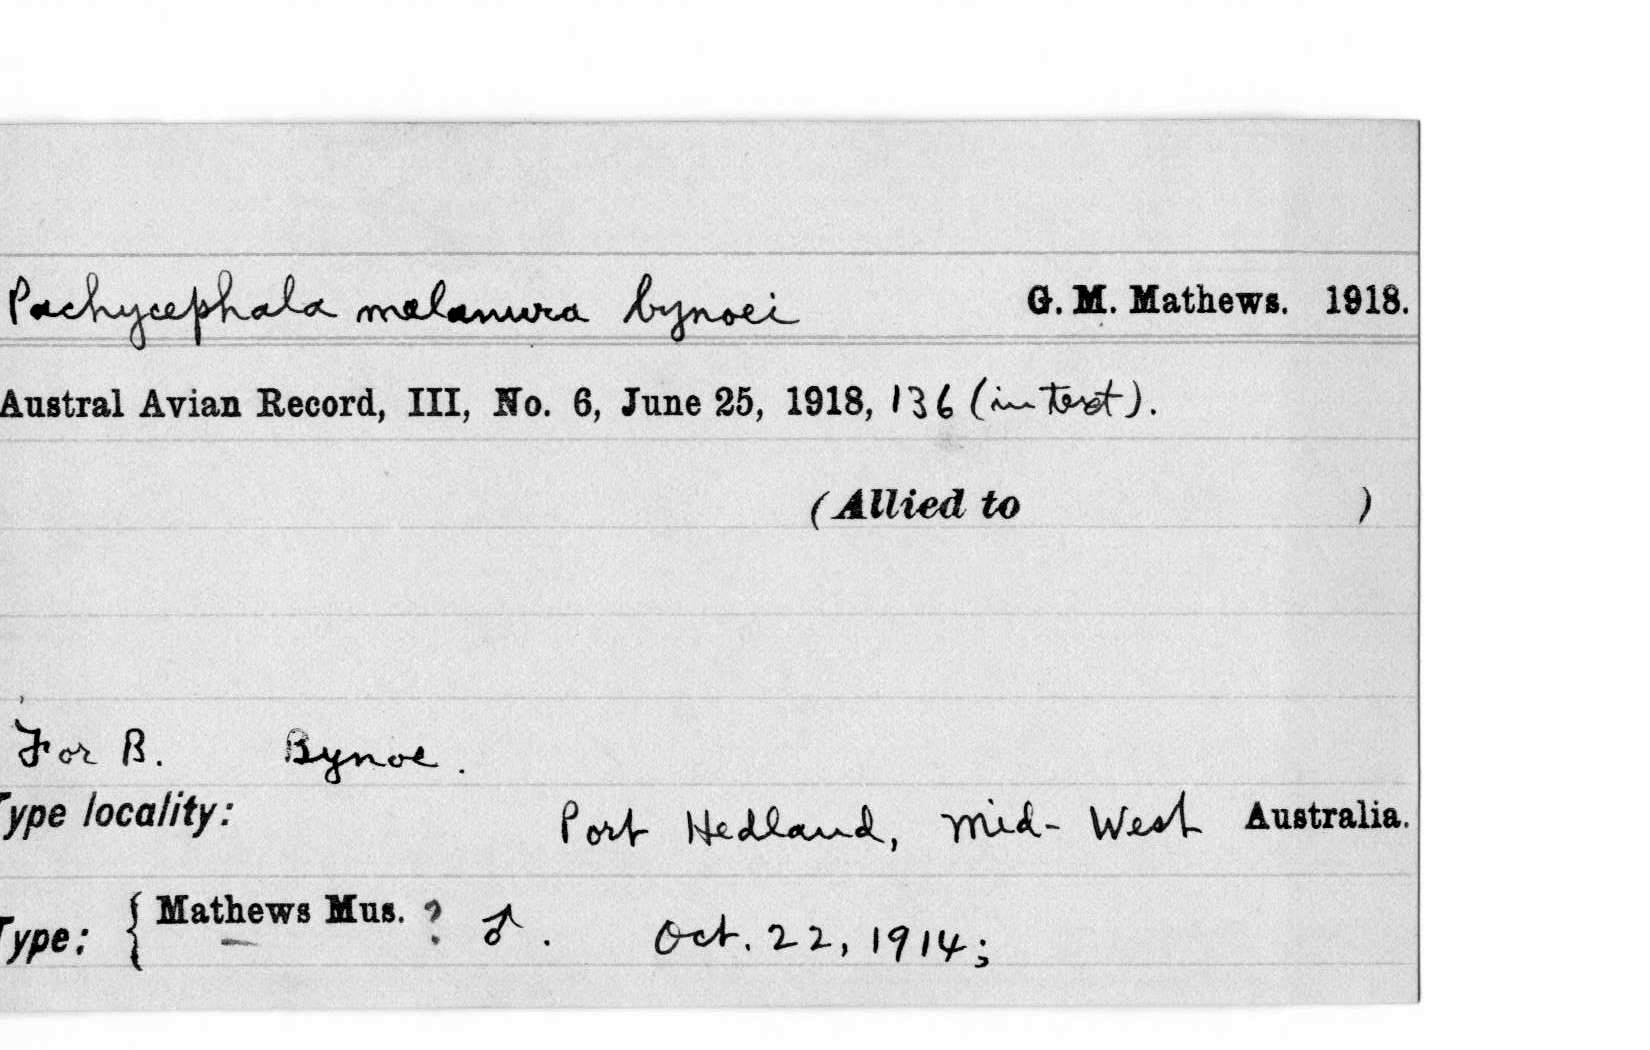 Pachycephala melanura bynoei G. M. Mathews. 1918.
Austral Avian Record, III, No. 6, June 25, 1918, 136 (in text).
(Allied to )
For B. Bynoe.
Type locality: Port Hedland, Mid-West Australia.
Type: { Mathews Mus. ? ♂. Oct. 22, 1914;